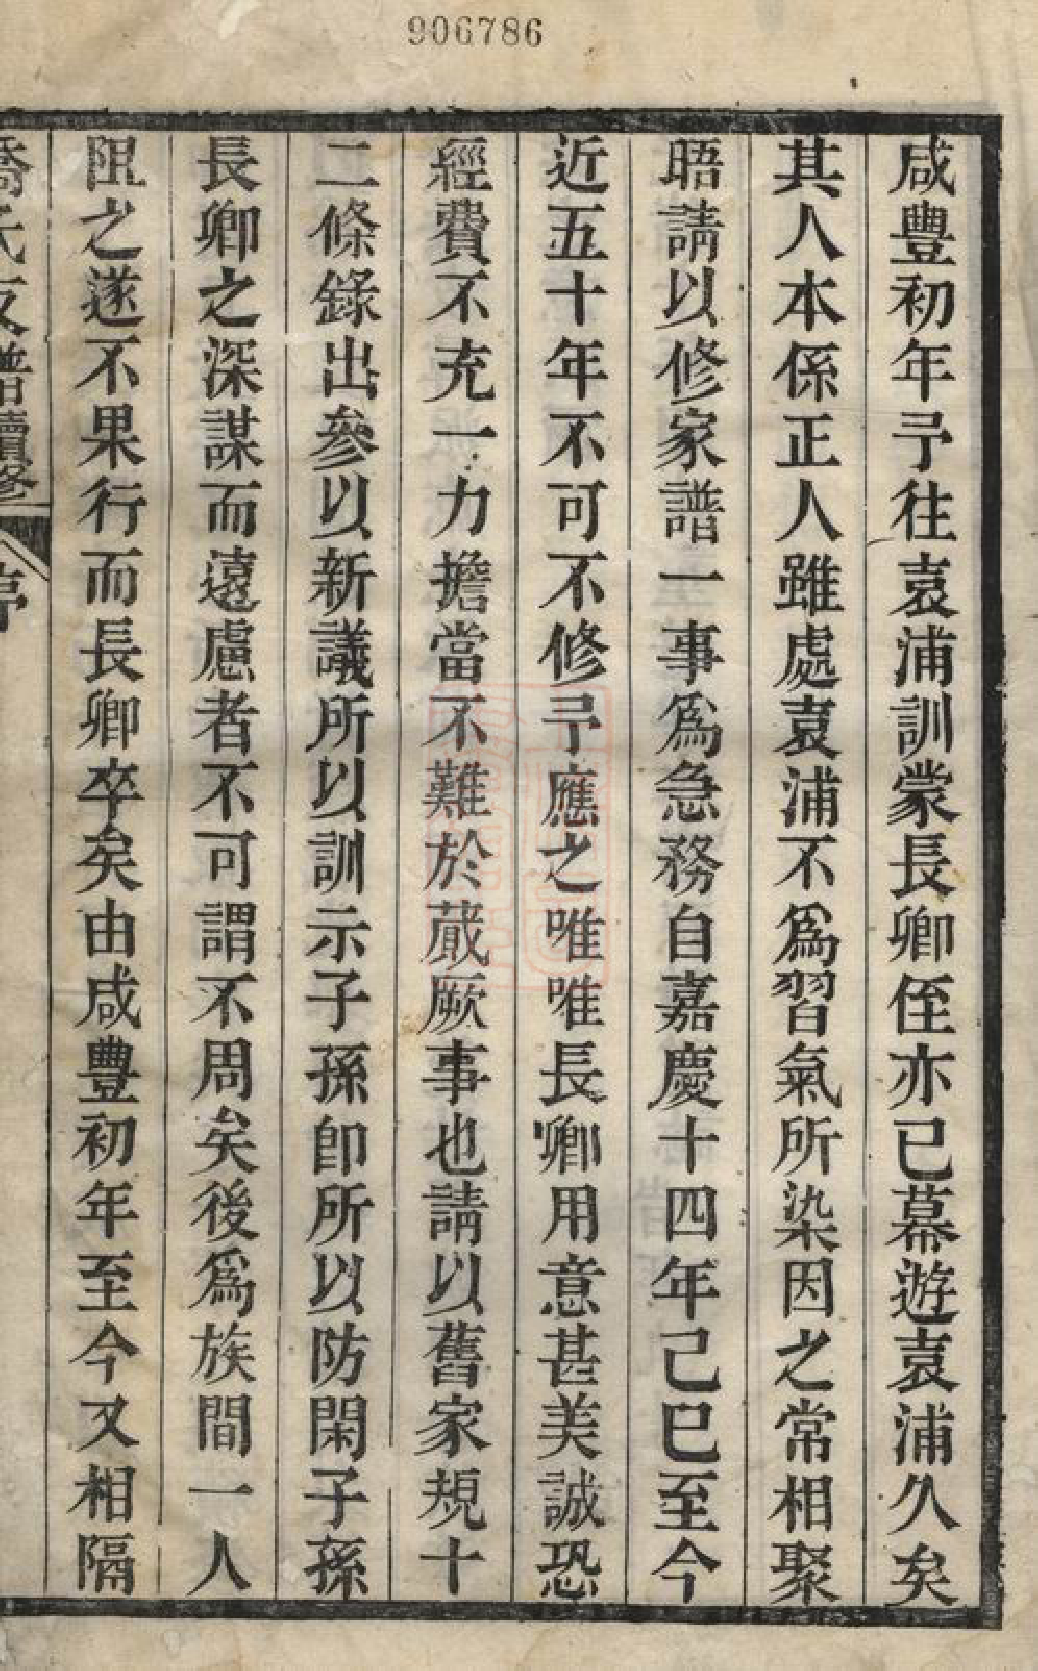 906786
咸豐初年予往袁浦訓蒙長卿侄亦已幕遊袁浦久矣
其人本係正人雖處袁浦不為習氣所染因之常相聚
晤請以修家譜一事為急務自嘉慶十四年己巳至今
近五十年不可不修予應之唯唯長卿用意甚美誠恐
經費不充一力擔當不難於蕆厥事也請以舊家規十
二條錄出參以新議所以訓示子孫卽所以防閑子孫
長卿之深謀而遠慮者不可謂不周矣後為族間一人
阻之遂不果行而長卿卒矣由咸豐初年至今又相隔
喬氏支譜續修 序